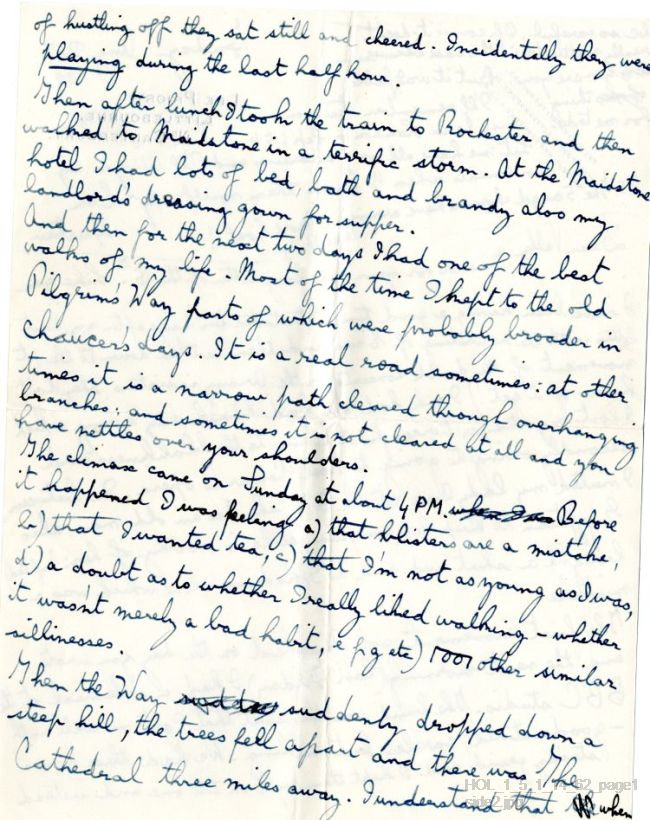 of hustling off they sat still and cheered. Incidentally they were
playing during the last half hour.
Then after lunch I took the train to Rochester and then
walked to Maidstone in a terrific storm. At the Maidstone
hotel I had lots of bed, bath and brandy also my
landlord's dressing gown for supper.
And then for the next two days I had one of the best
walks of my life. Most of the time I kept to the old
Pilgrim's Way parts of which were probably broader in
Chaucers days. It is a real road sometimes: at other
times it is a narrow path cleared through overhanging
branches: and sometimes it is not cleared at all and you
have nettles over your shoulders.
The climax came on Sunday at about 4 PM. when I was Before
it happened I was feeling a) that blisters are a mistake,
b) that I wanted tea, c) that I'm not as young as I was,
d) a doubt as to whether I really liked walking – whether
it wasn't merely a bad habit, e f g etc) 1001 other similar
sillinesses.
Then the Way suddenly dropped down a
steep hill, the trees fell apart and there was The
Cathedral three miles away. I understand that when
HOL_1_5_1_14_62_page1
side2.jpg